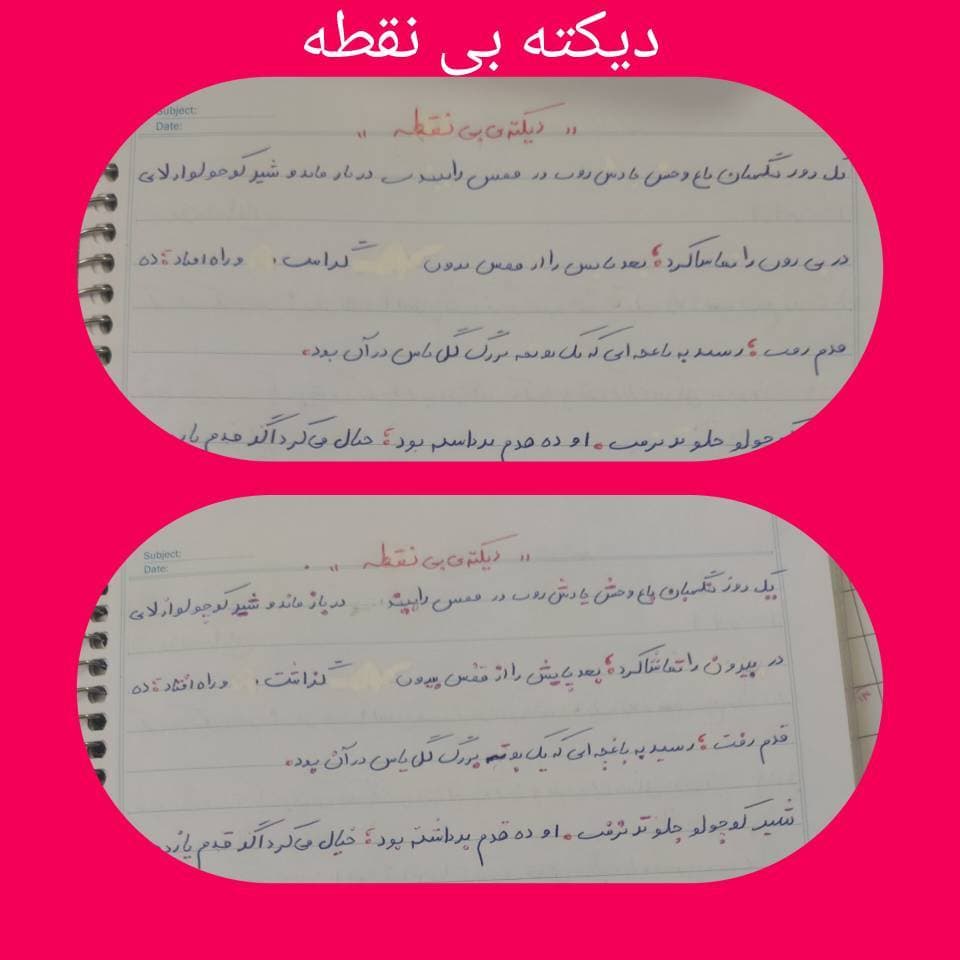 دیکته بی نقطه
Subject:
Date:
" دیکته‌ی بی نقطه "
ٮک روز نگهٮان ٮاع وحش ٮادش روٮ در ڡڡس را ٮٮٮدد در ٮار ماند و شٮر کوحولو ار لای
در ٮی روں را ٮماسا کرد؛ ٮعد ٮاٮس را ار ڡڡس ٮٮروں گداسٮ. و راه اڡٮاد؛ ده
ڡدم رڡٮ؛ رسٮد ٮه ٮاعحه ای که ٮک ٮوٮه ٮزرگ گل ٮاس در آن ٮود.
حولو حلو ٮر ٮرڡٮ. او ده ڡدم ٮرداسٮه ٮود؛ حٮال می کرد اگر ڡدم ٮار
Subject:
Date:
" دیکته‌ی بی نقطه "
یک روز نگهبان باغ وحش یادش روب در قفس را ببند در باز ماند و شیر کوچولو از لای
در بیرون را تماشا کرد؛ بعد پایش را از قفس بیرون گذاشت. و راه افتاد؛ ده
قدم رفت؛ رسید به باغچه ای که یک بوته بزرگ گل یاس در آن بود.
شیر کوچولو جلو تر نرفت. او ده قدم برداشته بود؛ خیال می کرد اگر قدم یازد